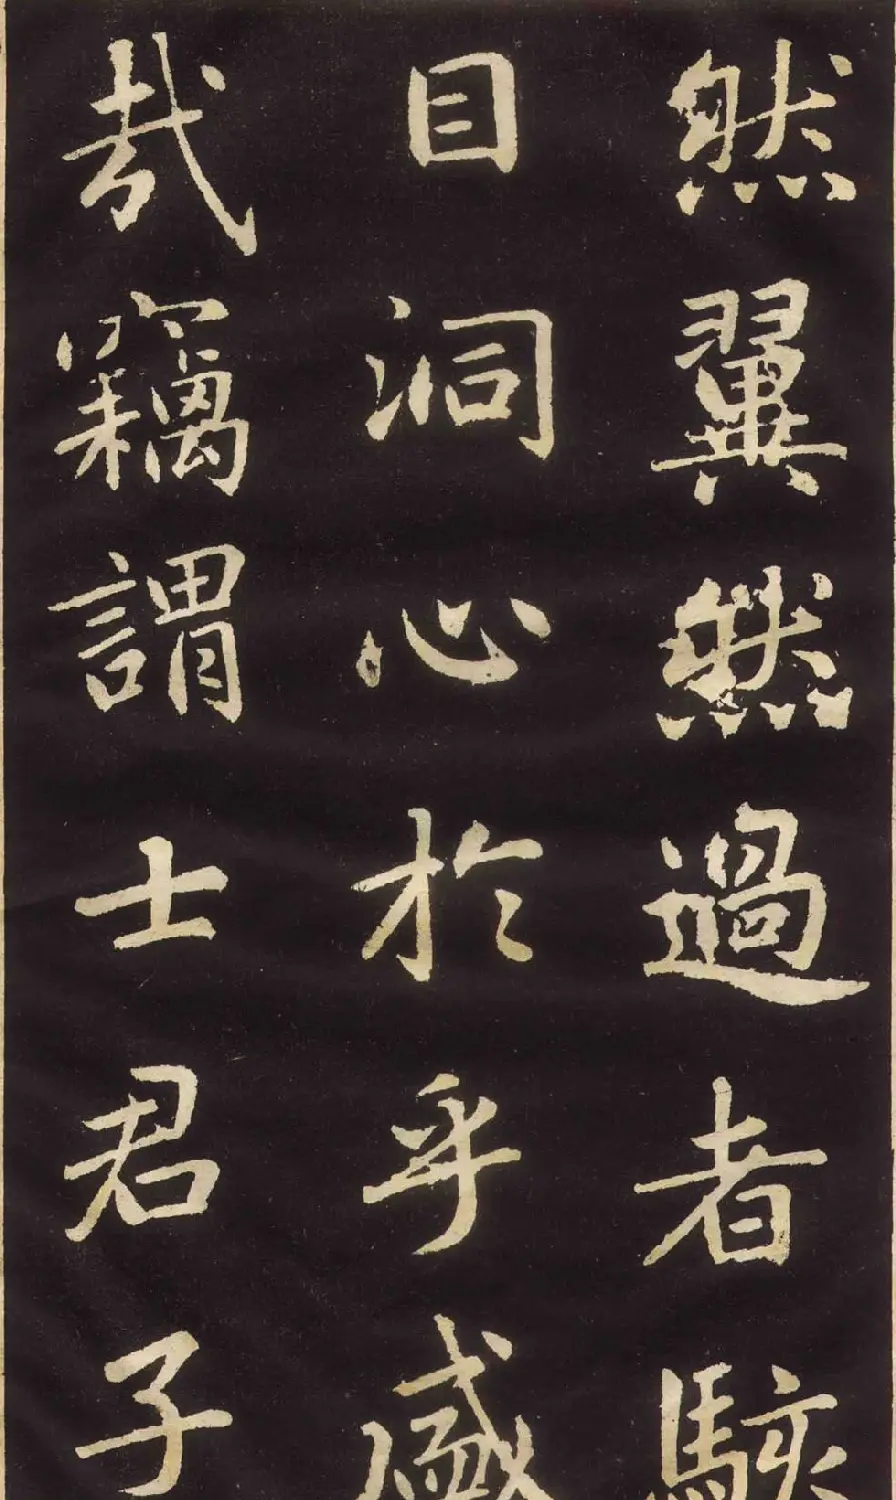 然翼然過者駭
目洞心於乎盛
哉竊謂士君子